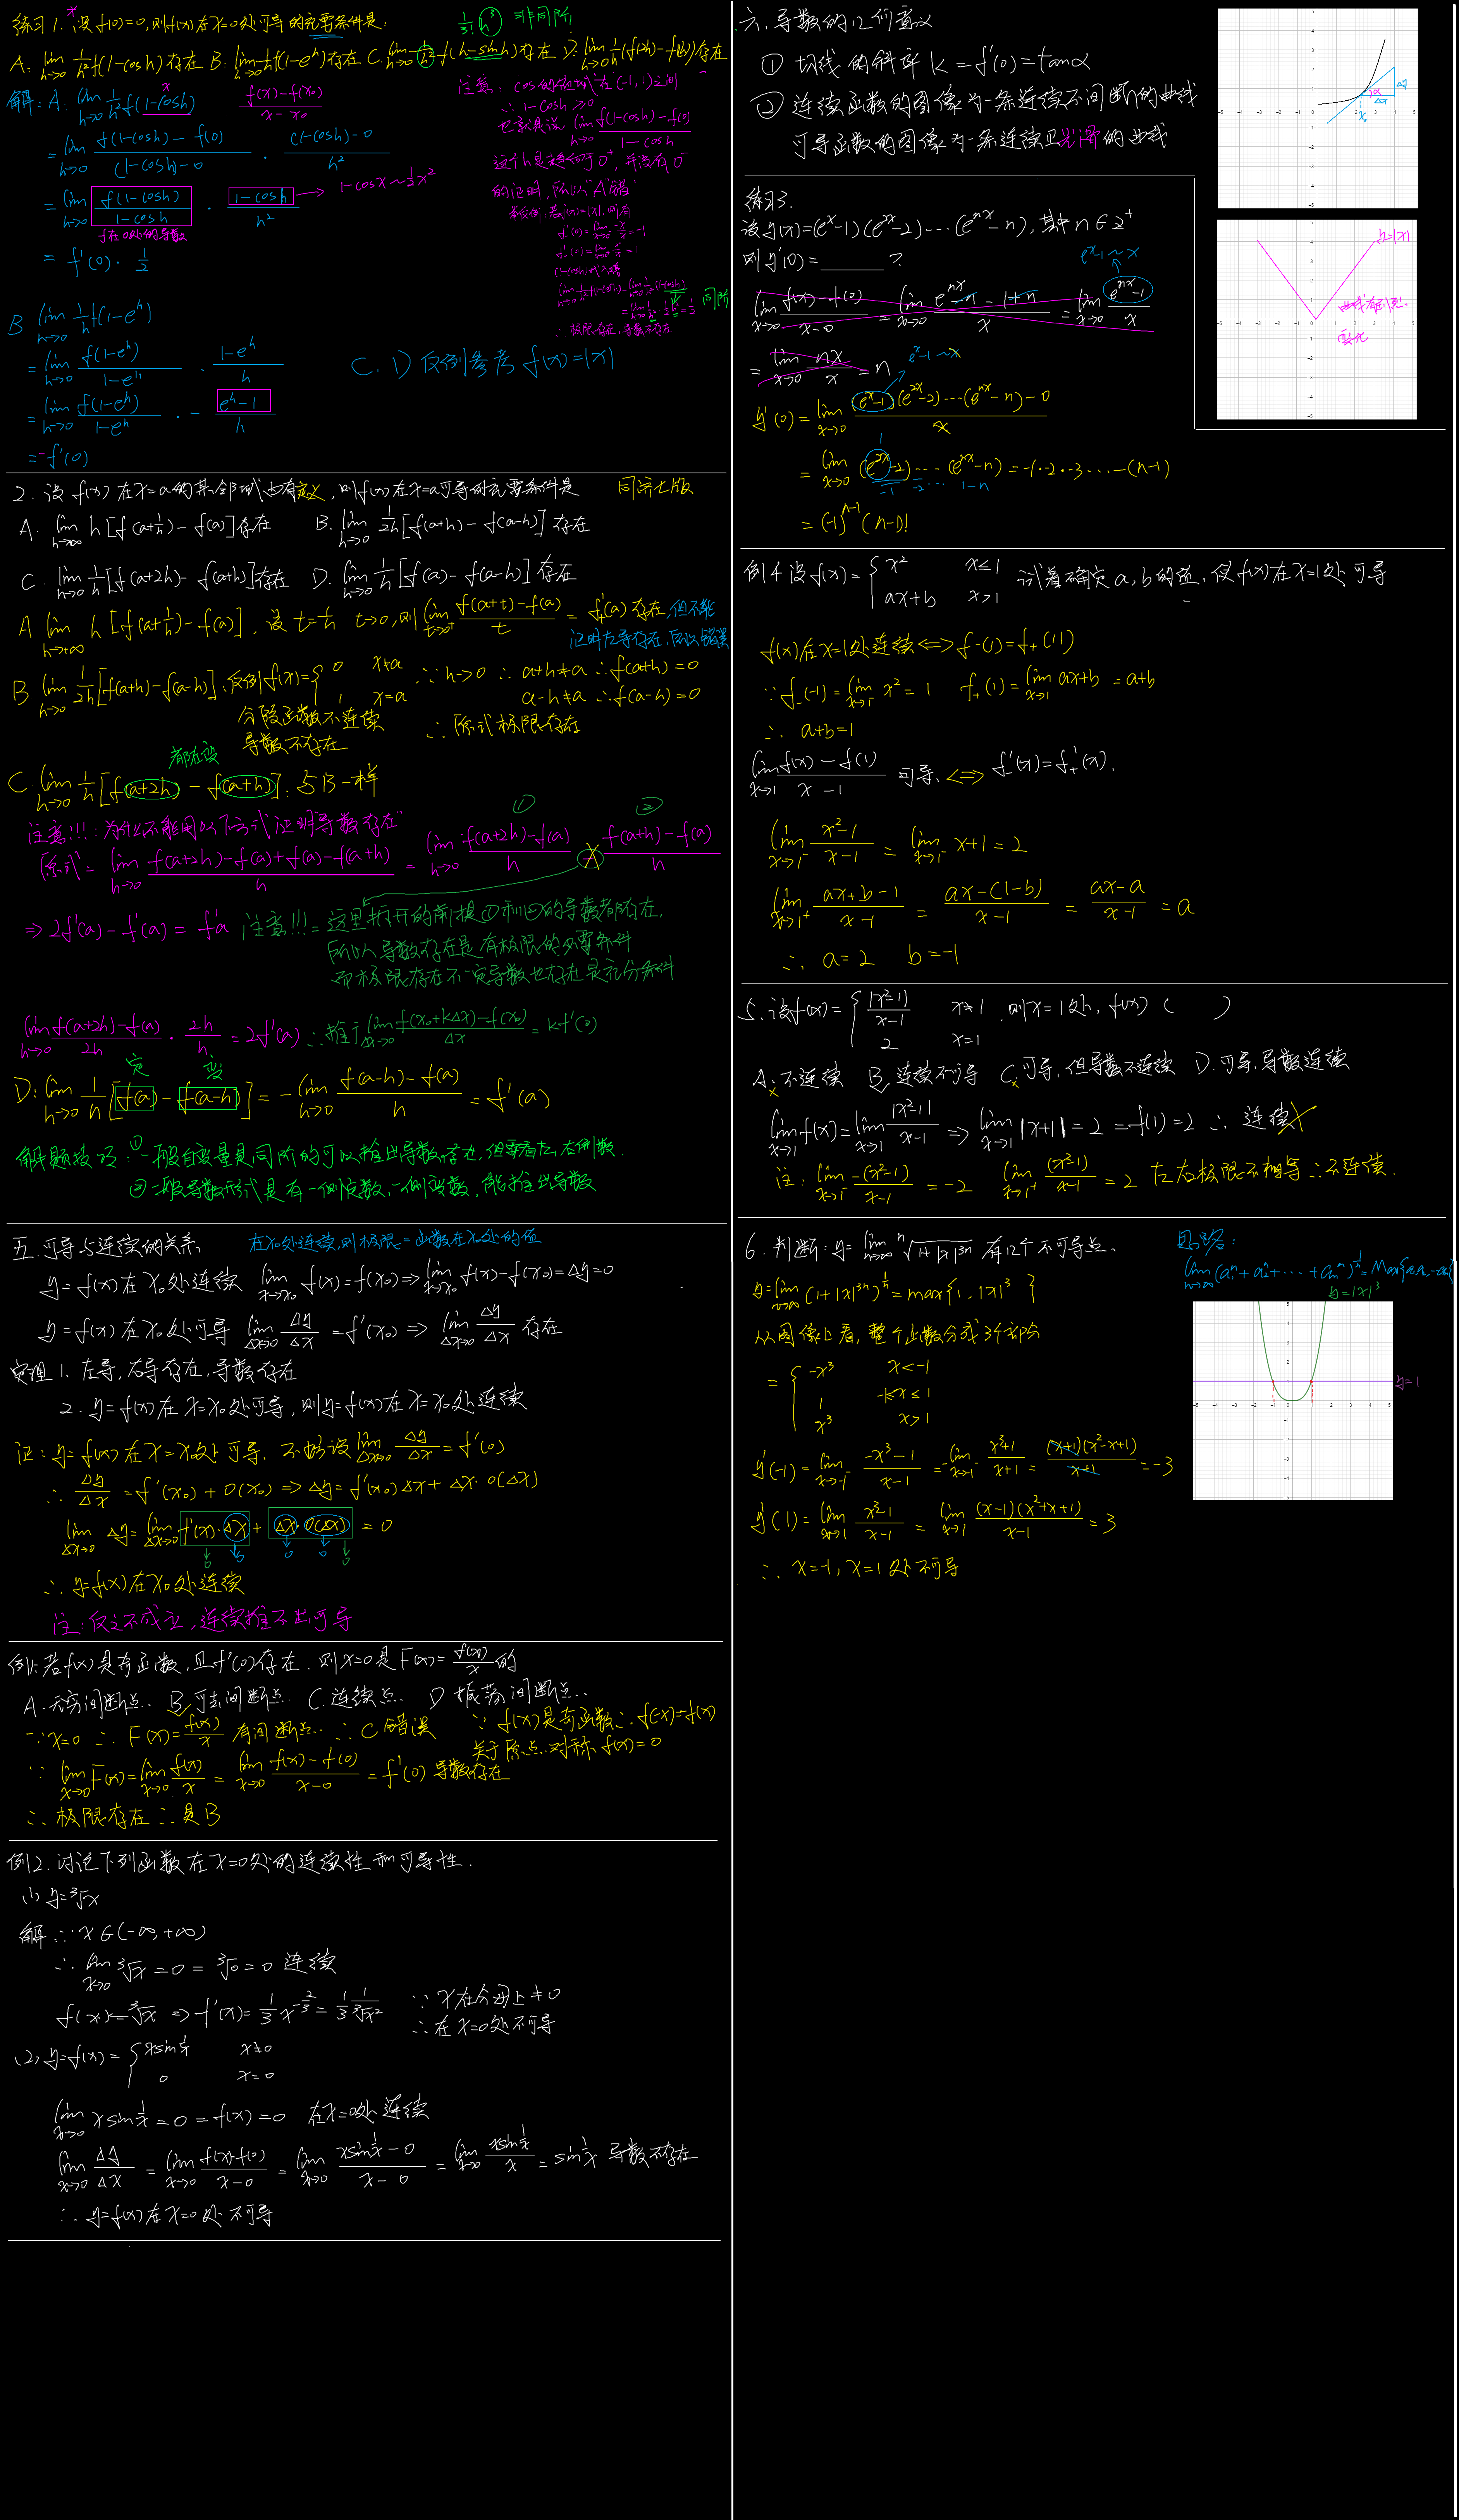 练习1. 设f(0)=0,则f(x)在x=0处可导的充要条件是:
1/3! h³ 非同阶!
A: lim_{h→0} 1/h² f(1-cosh) 存在 B: lim_{h→0} 1/h f(1-e^h) 存在 C: lim_{h→0} 1/h² f(h-sinh) 存在 D: lim_{h→0} 1/h (f(2h)-f(h)) 存在
解: A: lim_{h→0} 1/h² f(1-cosh) (f(x)-f(x₀))/(x-x₀)
= lim_{h→0} (f(1-cosh)-f(0))/((1-cosh)-0) · ((1-cosh)-0)/h²
= lim_{h→0} f(1-cosh)/(1-cosh) · (1-cosh)/h² → 1-cosx~½x²
f在0处的导数
= f'(0)·1/2
注意: cos的值域在(-1,1)之间
∴ 1-cosh ≥0
也就是误 lim_{h→0} (f(1-cosh)-f(0))/(1-cosh)
这个h是趋向于0⁺,并没有0⁻
的证明,所以"A"错
举反例:若f(x)=|x|,则有
f'(0)=lim -x/x=-1
f'(0)=lim x/x=1
(1-cosh)代入
同阶
∴ 极限存在,导数不存在
B lim_{h→0} 1/h f(1-e^h)
= lim_{h→0} f(1-e^h)/(1-e^h) · (1-e^h)/h
= lim_{h→0} f(1-e^h)/(1-e^h) · -(e^h-1)/h
=-f'(0)
C、D 反例参考 f(x)=|x|
2. 设f(x)在x=a的某邻域内有定义,则f(x)在x=a可导的充要条件是 同济七版
A. lim_{h→∞} h[f(a+1/h)-f(a)]存在 B. lim_{h→0} 1/2h [f(a+h)-f(a-h)] 存在
C. lim_{h→0} 1/h [f(a+2h)-f(a+h)]存在 D. lim_{h→0} 1/h [f(a)-f(a-h)] 存在
A lim_{h→+∞} h[f(a+1/h)-f(a)], 设t=1/h t→0,则 lim_{t→0⁺} (f(a+t)-f(a))/t = f'(a)存在,但不能
证明左导存在,所以错误
B lim_{h→0} 1/2h [f(a+h)-f(a-h)].反例f(x)={0 x≠a ∵h→0 ∴ a+h≠a ∴f(a+h)=0
1 x=a a-h≠a ∴f(a-h)=0
分段函数不连续 ∴原式极限存在
导数不存在
都在变
C lim_{h→0} 1/h [f(a+2h)-f(a+h)]: 与B一样
注意!!!:为什么不能用以下方式"证明导数存在" ① ②
原式= lim_{h→0} (f(a+2h)-f(a)+f(a)-f(a+h))/h = lim_{h→0} (f(a+2h)-f(a))/h - (f(a+h)-f(a))/h
⇒ 2f'(a)-f'(a)=f'a 注意!!!=这里拆开的前提①和②的导数都存在,
所以导数存在是有极限的必要条件
而极限存在不一定导数也存在是充分条件
lim_{h→0} (f(a+2h)-f(a))/2h · 2h/h = 2f'(a) ∴推广 lim_{Δx→0} (f(x₀+kΔx)-f(x₀))/Δx = kf'(0)
定 变
D: lim_{h→0} 1/h [f(a)-f(a-h)] = -lim_{h→0} (f(a-h)-f(a))/h = f'(a)
解题技巧:①一般自变量是同阶的可以推出导数存在,但要看左、右倒数.
②一般导数形式是有一侧定数,一侧变数,能推出导数
五.可导与连续的关系、 在x₀处连续,则极限=函数在x₀处的值
y=f(x)在x₀处连续 lim_{x→x₀} f(x)=f(x₀)⇒lim_{x→x₀} f(x)-f(x₀)=Δy=0
y=f(x)在x₀处可导 lim_{Δx→0} Δy/Δx =f'(x₀)⇒ lim_{Δx→0} Δy/Δx 存在
定理1、左导、右导存在、导数存在
2. y=f(x)在x=x₀处可导,则y=f(x)在x=x₀处连续
证:y=f(x)在x=x₀处可导、不妨设 lim_{Δx→0} Δy/Δx=f'(0)
∴ Δy/Δx =f'(x₀)+0(x₀)⇒Δy=f'(x₀)Δx+Δx·0(Δx)
lim_{Δx→0} Δy=lim_{Δx→0} f'(x)·Δx + Δx·0(Δx) = 0
0 0 0 0 0
∴ y=f(x)在x₀处连续
注:反之不成立,连续推不出可导
例1.若f(x)是奇函数,且f'(0)存在.则x=0是F(x)=f(x)/x 的
A.无穷间断点、 B.可去间断点 C.连续点、 D 振荡间断点、
∵x=0 ∴ F(x)=f(x)/x 有间断点、∴C错误 ∵f(x)是奇函数∴f(-x)=-f(x)
关于原点对称、f(x)=0
∵ lim_{x→0} F(x)=lim_{x→0} f(x)/x = lim_{x→0} (f(x)-f(0))/(x-0) = f'(0) 导数存在
∴ 极限存在 ∴是B
例2.讨论下列函数在x=0处的连续性和可导性.
(1) y=³√x
解∵ x∈(-∞,+∞)
∴ lim_{x→0} ³√x=0=³√0=0 连续
f(x)=³√x ⇒f'(x)=1/3 x^{-2/3}=1/3 1/³√x² ∵x在分母上≠0
∴在x=0处不可导
(2) y=f(x)={xsin1/x x≠0
0 x=0
lim_{x→0} xsin1/x=0=f(x)=0 在x=0处连续
lim_{x→0} Δy/Δx = lim_{x→0} (f(x)-f(0))/(x-0) = lim_{x→0} (xsin1/x-0)/(x-0) = lim_{x→0} xsin1/x/x = sin1/x 导数不存在
∴ y=f(x)在x=0处不可导
六、导数的几何意义
① 切线的斜率 k=f'(0)=tanα
② 连续函数的图像为一条连续不间断的曲线
可导函数的图像为一条连续且光滑的曲线
练习3.
设y(x)=(e^x-1)(e^{2x}-2)…(e^{nx}-n),其中n∈z⁺
则y'(0)=______? e^x-1~x
lim_{x→0} (f(x)-f(0))/(x-0) = lim_{x→0} (e^{nx}-n-1+n)/x = lim_{x→0} (e^{nx}-1)/x
= lim_{x→0} nx/x = n e^x-1~x
y'(0)= lim_{x→0} ((e^x-1)(e^{2x}-2)…(e^{nx}-n)-0)/x
= lim_{x→0} (e^{2x}-2)…(e^{nx}-n)=-1·-2·-3…-(n-1)
1 -1 -2 … 1-n
= (-1)^{n-1}(n-1)!
y=|x|
例4 设f(x)={x² x≤1 试着确定a,b的值,使f(x)在x=1处可导
ax+b x>1
f(x)在x=1处连续⇔f-(1)=f+(1)
∵f-(-1)=lim_{x→1⁻} x²=1 f+(1)=lim_{x→1} ax+b=a+b
∴ a+b=1
lim_{x→1} (f(x)-f(1))/(x-1) 可导、⇔ f'-(x)=f'+(x).
lim_{x→1⁻} (x²-1)/(x-1) = lim_{x→1⁻} x+1=2
lim_{x→1⁺} (ax+b-1)/(x-1) = (ax-(1-b))/(x-1) = (ax-a)/(x-1) = a
∴ a=2 b=-1
5.设f(x)={|x²-1|/(x-1) x≠1 .则x=1处,f(x)( )
2 x=1
A.不连续 B.连续不可导 C.可导,但导数不连续 D.可导,导数连续
lim_{x→1} f(x)=lim_{x→1} |x²-1|/(x-1) ⇒ lim_{x→1} |x+1|=2=f(1)=2 ∴ 连续
注: lim_{x→1⁻} -(x²-1)/(x-1) =-2 lim_{x→1⁺} (x²-1)/(x-1)=2 左右极限不相等∴不连续.
6.判断:y=lim_{n→∞} ⁿ√(1+|x|^{3n}) 有几个不可导点、 思路:
lim_{n→∞} (a₁ⁿ+a₂ⁿ+…+aₘⁿ)^{1/n}=Max{a₁a₂…aₘ}
y=lim_{n→∞} (1+|x|^{3n})^{1/n}=max{1,|x|³} y=|x|³
从图像上看,整个函数分成3个部分
={-x³ x<-1
1 -1≤x≤1
x³ x>1
y=1
y'(-1)=lim_{x→-1⁻} (-x³-1)/(x-1) =-lim_{x→-1⁻} (x³+1)/(x+1) = (x+1)(x²-x+1)/(x+1) =-3
y'(1)=lim_{x→1} (x³-1)/(x-1) = lim_{x→1} (x-1)(x²+x+1)/(x-1) =3
∴ x=-1,x=1处不可导